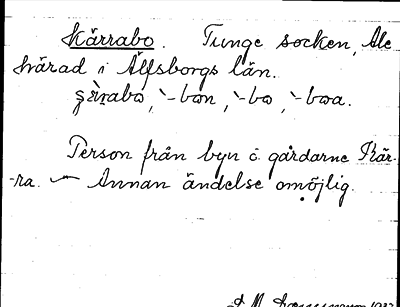 Kärrabo. Tunge socken, Ale
härad i Älfsborgs län.
-bon, -bo, -boa.
Person från byn o. gårdarne Kär-
-ra. — Annan ändelse omöjlig.